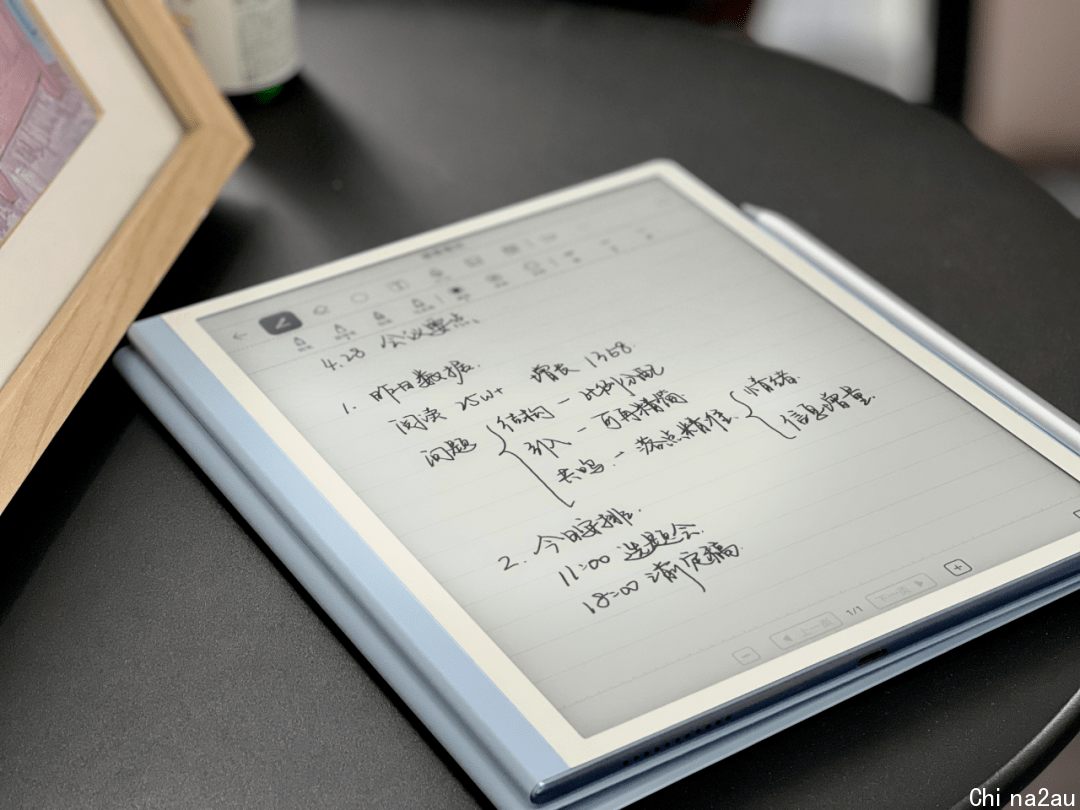 4.28 会议要点
1. 昨日数据.
阅读 25W+ 增长 1368.
问题 { 结构 - 比例分配
引入 - 可再精简
共鸣 - 落点精准 { 情绪.
信息增量.
2. 今日安排.
11:00 选题会.
18:00 前定稿
上一页 1/1 下一页
Chi na2au